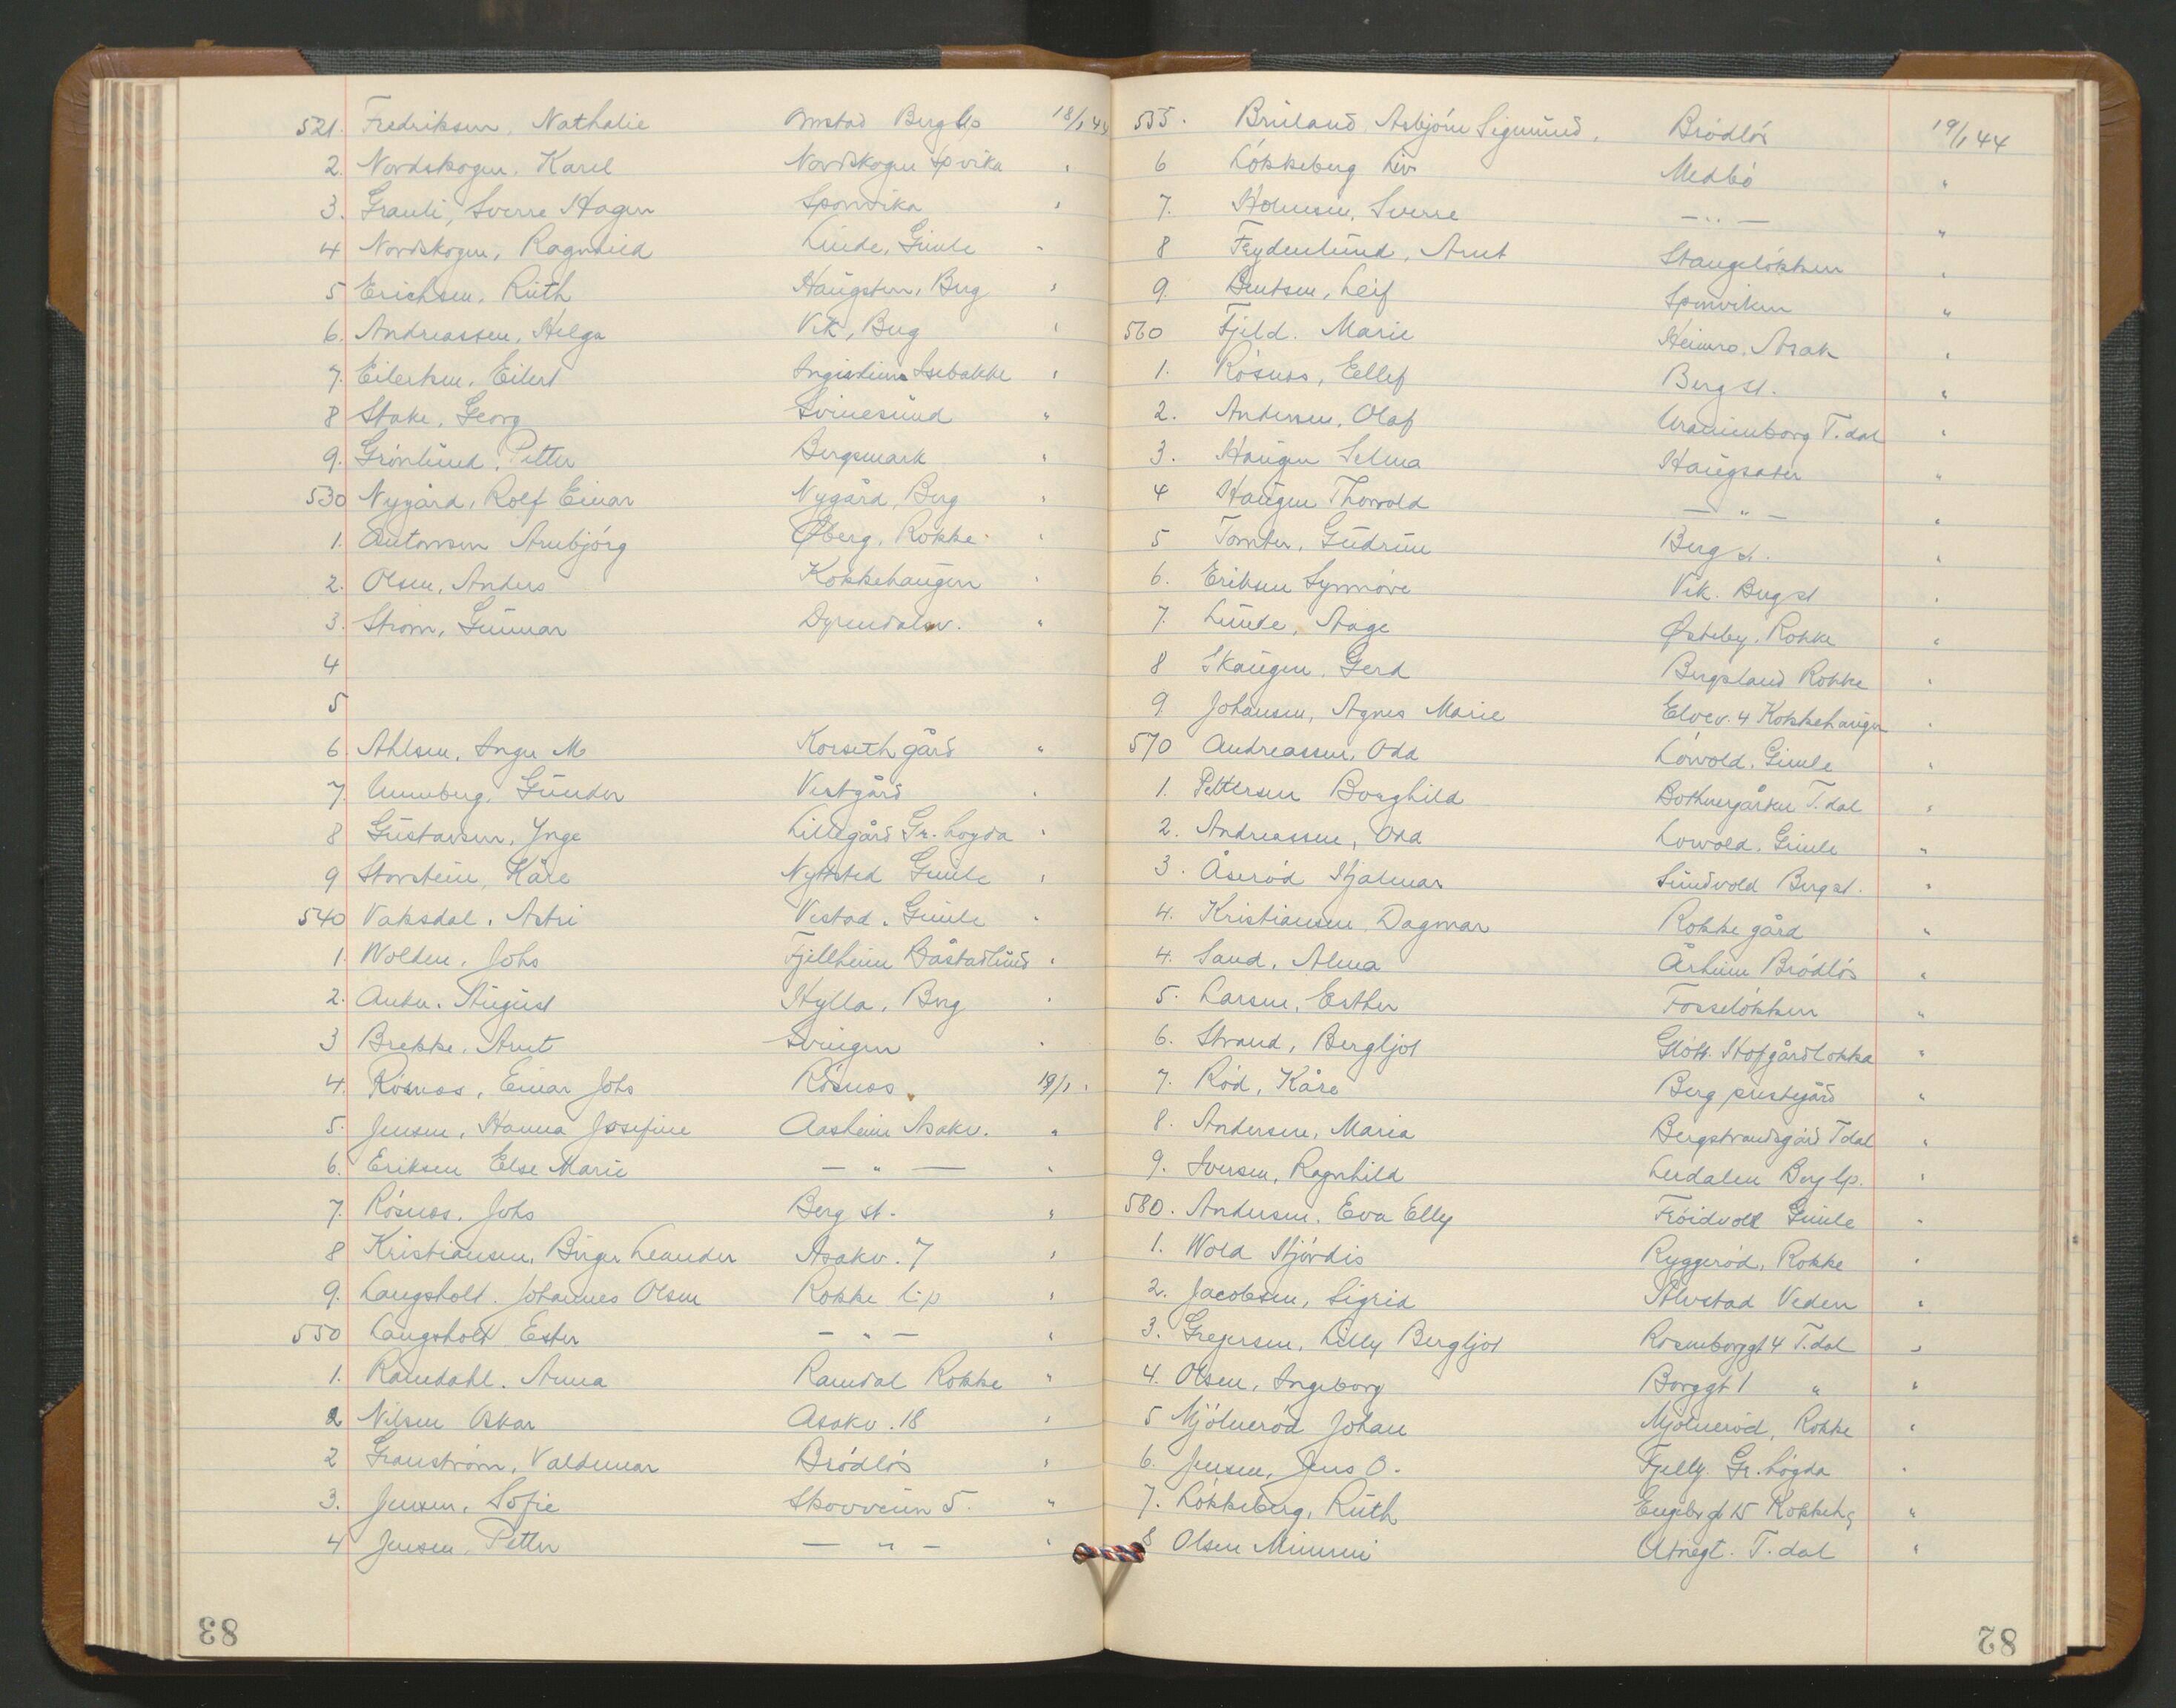 521. Fredriksen, Nathalie Onstad Berg lp 18/1 44
2. Nordskogen. Karel Nordskogen Spvika "
3. Grauli, Sverre Hagen Sponvika "
4 Nordskogen, Ragnhild Linde, Gimle "
5 Erichsen, Ruth Haugsten, Berg "
6. Andreassen, Helga Vik, Berg "
7. Eilertsen. Eilert Isebakke "
8 Stake, Georg Svinesund "
9. Grönlund, Petter Bergsmark "
530 Nygård, Rolf Einar Nygård, Berg "
1. Antonsen Arnbjörg Øberg, Rokke. "
2. Olsen, Anders Kokkehaugen "
3. Strøm, Gunnar Dyrendalsv. "
4
5
6 Ahlsen, Inger M Korseth gård "
7. Unneberg, Gunder Vestgård "
8 Gustavsen, Ynge Lillegård Gr. Løgda "
9 Storstein, Kåre Nyttsted Gimle "
540 Vaksdal. Astri Vestad. Gimle "
1. Wolden. Johs Fjellheim Båstadlund "
2. Anker. August Hylla, Berg "
3 Brekke. Arnt Svingen "
4. Rösnes, Einar Johs Rösnes. 19/1 "
5. Jensen, Hanna Josefine Aasheim Asakv. "
6. Eriksen Else Marie — " — "
7. Rösnes. Johs Berg st. "
8 Kristiansen, Birger Leander Asakv. 7 "
9. Langsholt. Johannes Olsen Rokke l.p "
550 Langsholt Ester — " — "
1. Ramdahl. Anna Ramdal Rokke "
2 Nilsen Oskar Asakv. 18 "
2 Granström, Valdemar Brödlös "
3. Jensen. Sofie Skovveien 5. "
4 Jensen, Petter — " — "
83
555. Bruland, Asbjörn Sigmund. Brödlös 19/1 44
6 Lökkeberg Liv Medbö "
7. Holmsen, Sverre — " — "
8 Frydenlund, Arnt Stangelökken "
9. Berntsen, Leif Sponviken "
560 Fjeld. Marie Heimro. Asak "
1. Rösnes, Ellef Berg st. "
2. Andersen, Olaf Uranienborg T. dal "
3. Haugen Selma Haugsaker "
4 Haugen Thorvold — " — "
5 Tomter, Gudrun Berg st. "
6. Eriksen Synnöve Vik. Berg st "
7. Lunde, Aage Østeby. Rokke "
8 Skaugen. Gerd Bergsland Rokke "
9 Johansen, Agnes Marie Elvev. 4 Kokkehaugen "
570 Andreassen, Odd Lövold. Gimle "
1. Pettersen Borghild Bothnergården T. dal "
2. Andreassen, Odd Lövold. Gimle "
3. Åseröd Hjalmar Sundvold Berg st. "
4. Kristiansen Dagmar Rokke gård "
4. Sand, Alma Årheim Brödlös "
5. Larsen, Esther Fosselökken "
6. Strand, Bergljot Hofgårdlökka "
7. Röd, Kåre Berg prestegård "
8. Andersen, Maria Bergstrandsgård T dal "
9. Iversen, Ragnhild Leidalen Berg lp. "
580. Andersen. Eva Elly Fröidvoll Gimle "
1. Wold Hjördis Ryggeröd, Rokke "
2. Jacobsen, Sigrid Alvstad Veden "
3. Gregersen, Lilly Bergljot Rosenborggt 4 T. dal "
4. Olsen, Ingeborg Borggt 1 " "
5 Mjölneröd Johan Mjölneröd, Rokke "
6. Jensen, Jens O. Fjelly Gr. Lögda "
7. Lökkeberg, Ruth Engebr gt 15 Kokkehg "
8 Olsen Mimmi Utnegt. T. dal "
82